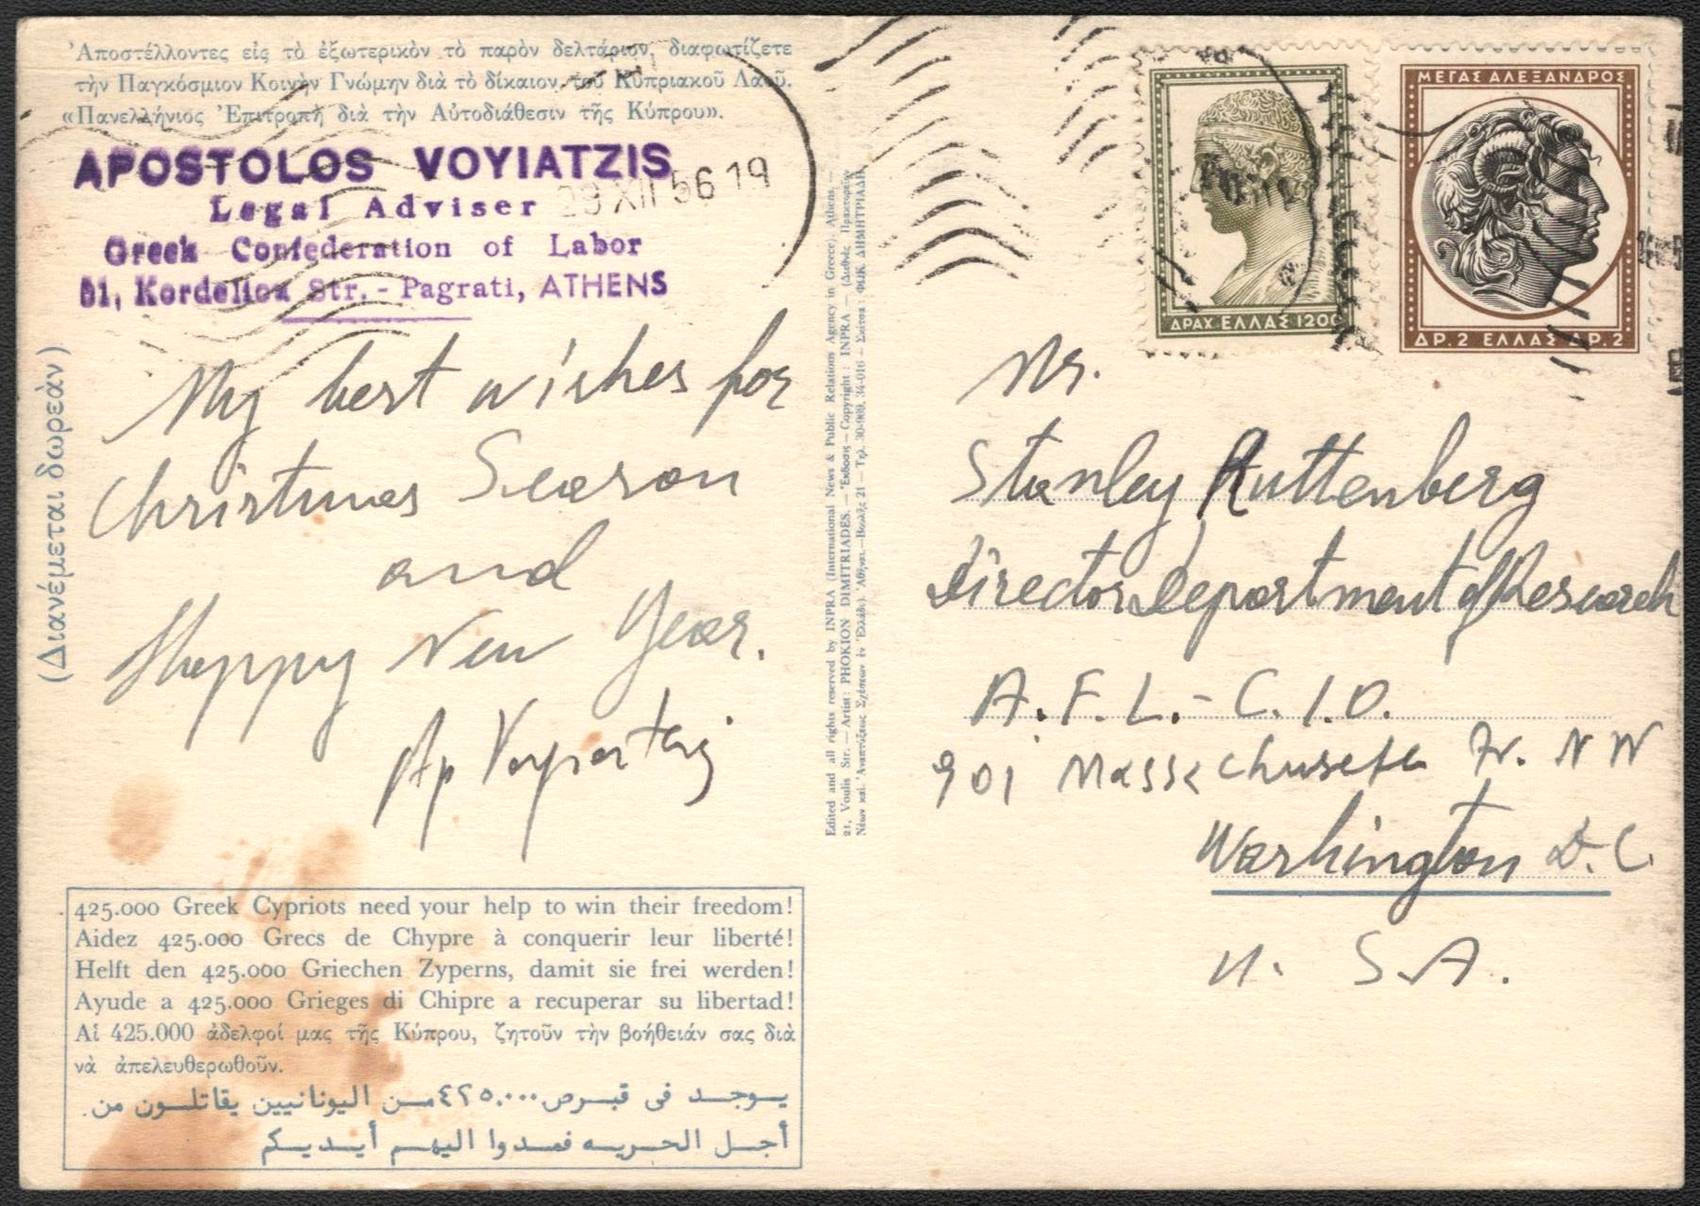 Ἀποστέλλοντες εἰς τὸ ἐξωτερικὸν τὸ παρὸν δελτάριον, διαφωτίζετε
τὴν Παγκόσμιον Κοινὴν Γνώμην διὰ τὸ δίκαιον τοῦ Κυπριακοῦ Λαοῦ.
«Πανελλήνιος Ἐπιτροπὴ διὰ τὴν Αὐτοδιάθεσιν τῆς Κύπρου».
APOSTOLOS VOYIATZIS
Legal Adviser
29 XII 56 19
Greek Confederation of Labor
51, Kordeliou Str. - Pagrati, ATHENS
(Διανέμεται δωρεὰν)
My best wishes for
Christmas Season
and
Happy New Year.
Ap Voyiatzis
425.000 Greek Cypriots need your help to win their freedom!
Aidez 425.000 Grecs de Chypre à conquerir leur liberté!
Helft den 425.000 Griechen Zyperns, damit sie frei werden!
Ayude a 425.000 Grieges di Chipre a recuperar su libertad!
Αἱ 425.000 ἀδελφοί μας τῆς Κύπρου, ζητοῦν τὴν βοήθειάν σας διὰ
νὰ ἀπελευθερωθοῦν.
يوجد فى قبرص ٤٢٥.٠٠٠ من اليونانيين يقاتلون من
أجل الحريه فمدوا اليهم أيديكم
Edited and all rights reserved by INPRA (International News & Public Relations Agency in Greece) Athens, —
21, Voulis Str. — Artist: PHOKION DIMITRIADES. — Ἔκδοσις — Copyright: INPRA — (Διεθνὲς Πρακτορεῖον
Νέων καὶ Ἀναπτύξεως Σχέσεων ἐν Ἑλλάδι). Ἀθῆναι.—Βουλῆς 21 — Τηλ. 30-909, 34-016 — Σκίτσα: ΦΩΚ. ΔΗΜΗΤΡΙΑΔΗ
ΔΡΑΧ ΕΛΛΑΣ 1200
ΜΕΓΑΣ ΑΛΕΞΑΝΔΡΟΣ
ΔΡ.2 ΕΛΛΑΣ ΔΡ.2
Mr.
Stanley Ruttenberg
Director Department of Research
A.F.L.-C.I.O.
901 Massachusets Av. NW
Washington D.C.
U. S.A.